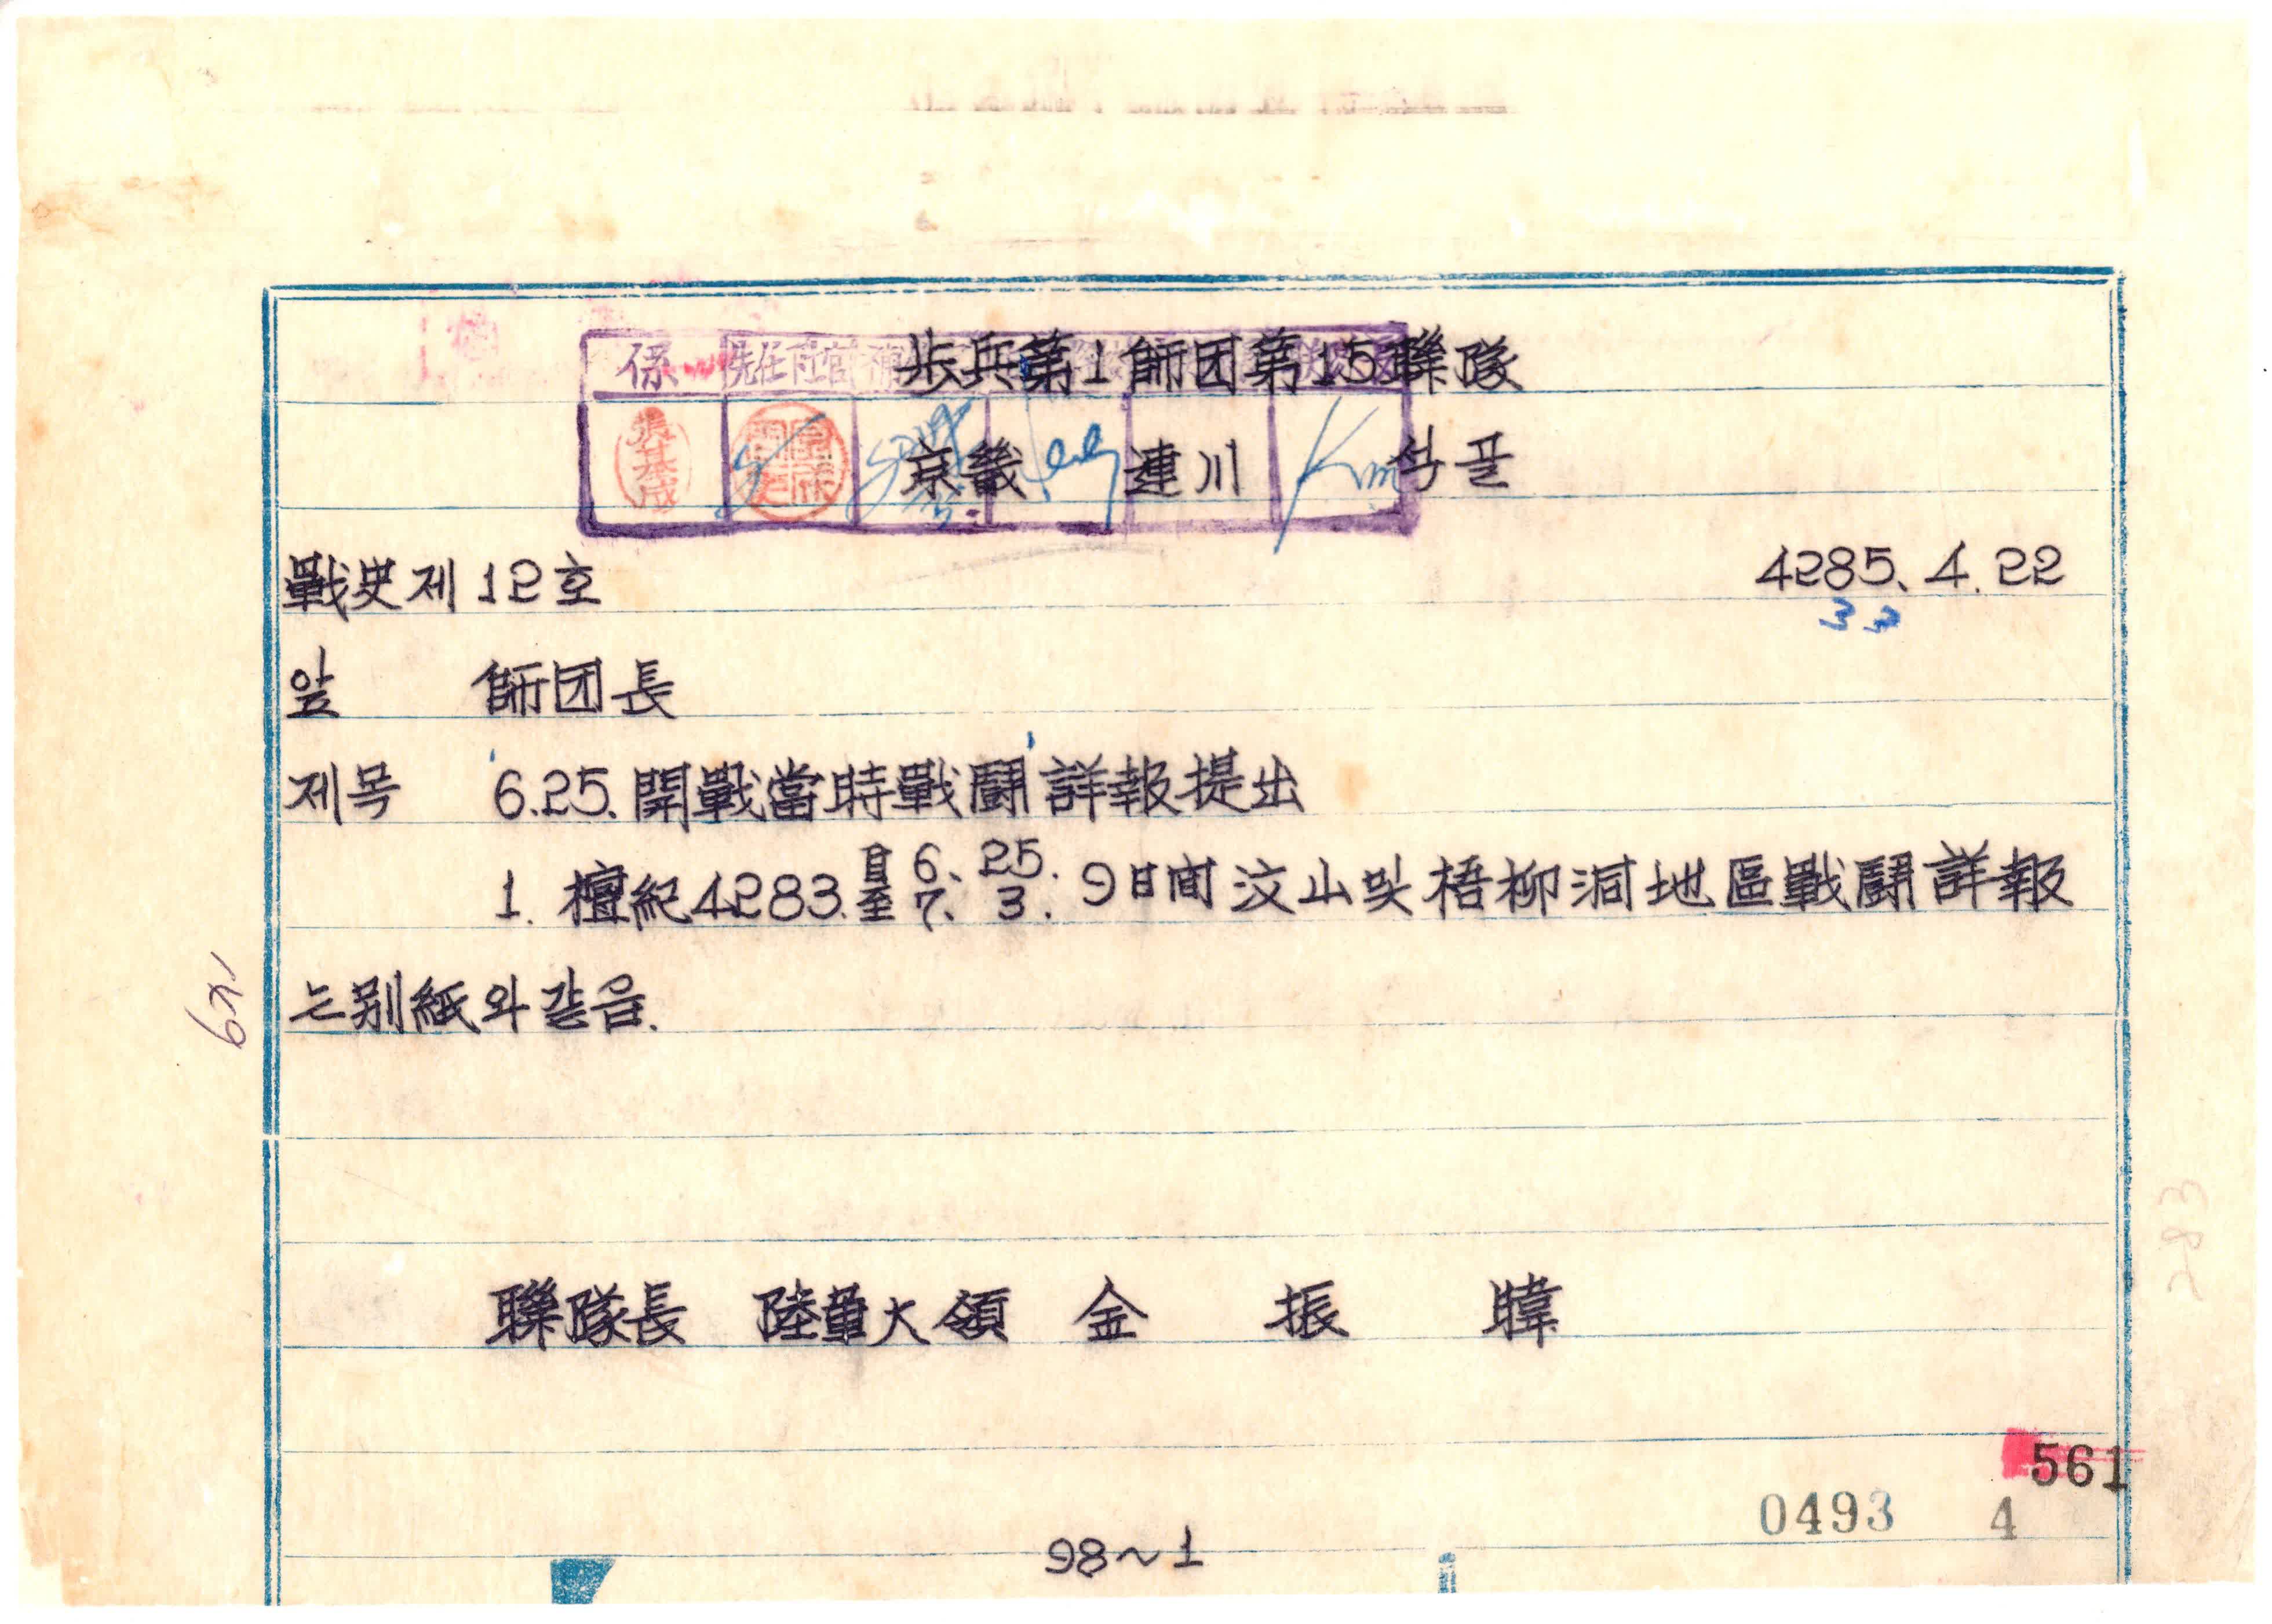 步兵第1師団第15聯隊
係 先任下士官
張基成
京畿 連川 삭골
戰史제12호 4285. 4. 22
33
앞 師団長
제목 6.25. 開戰當時戰鬪詳報提出
1. 檀紀4283. 自 6. 25. 至 7. 3. 9日間 汶山및梧柳洞地區戰鬪詳報
는別紙와같음.
聯隊長 陸軍大領 金 振 暐
561
0493 4
98~1
283